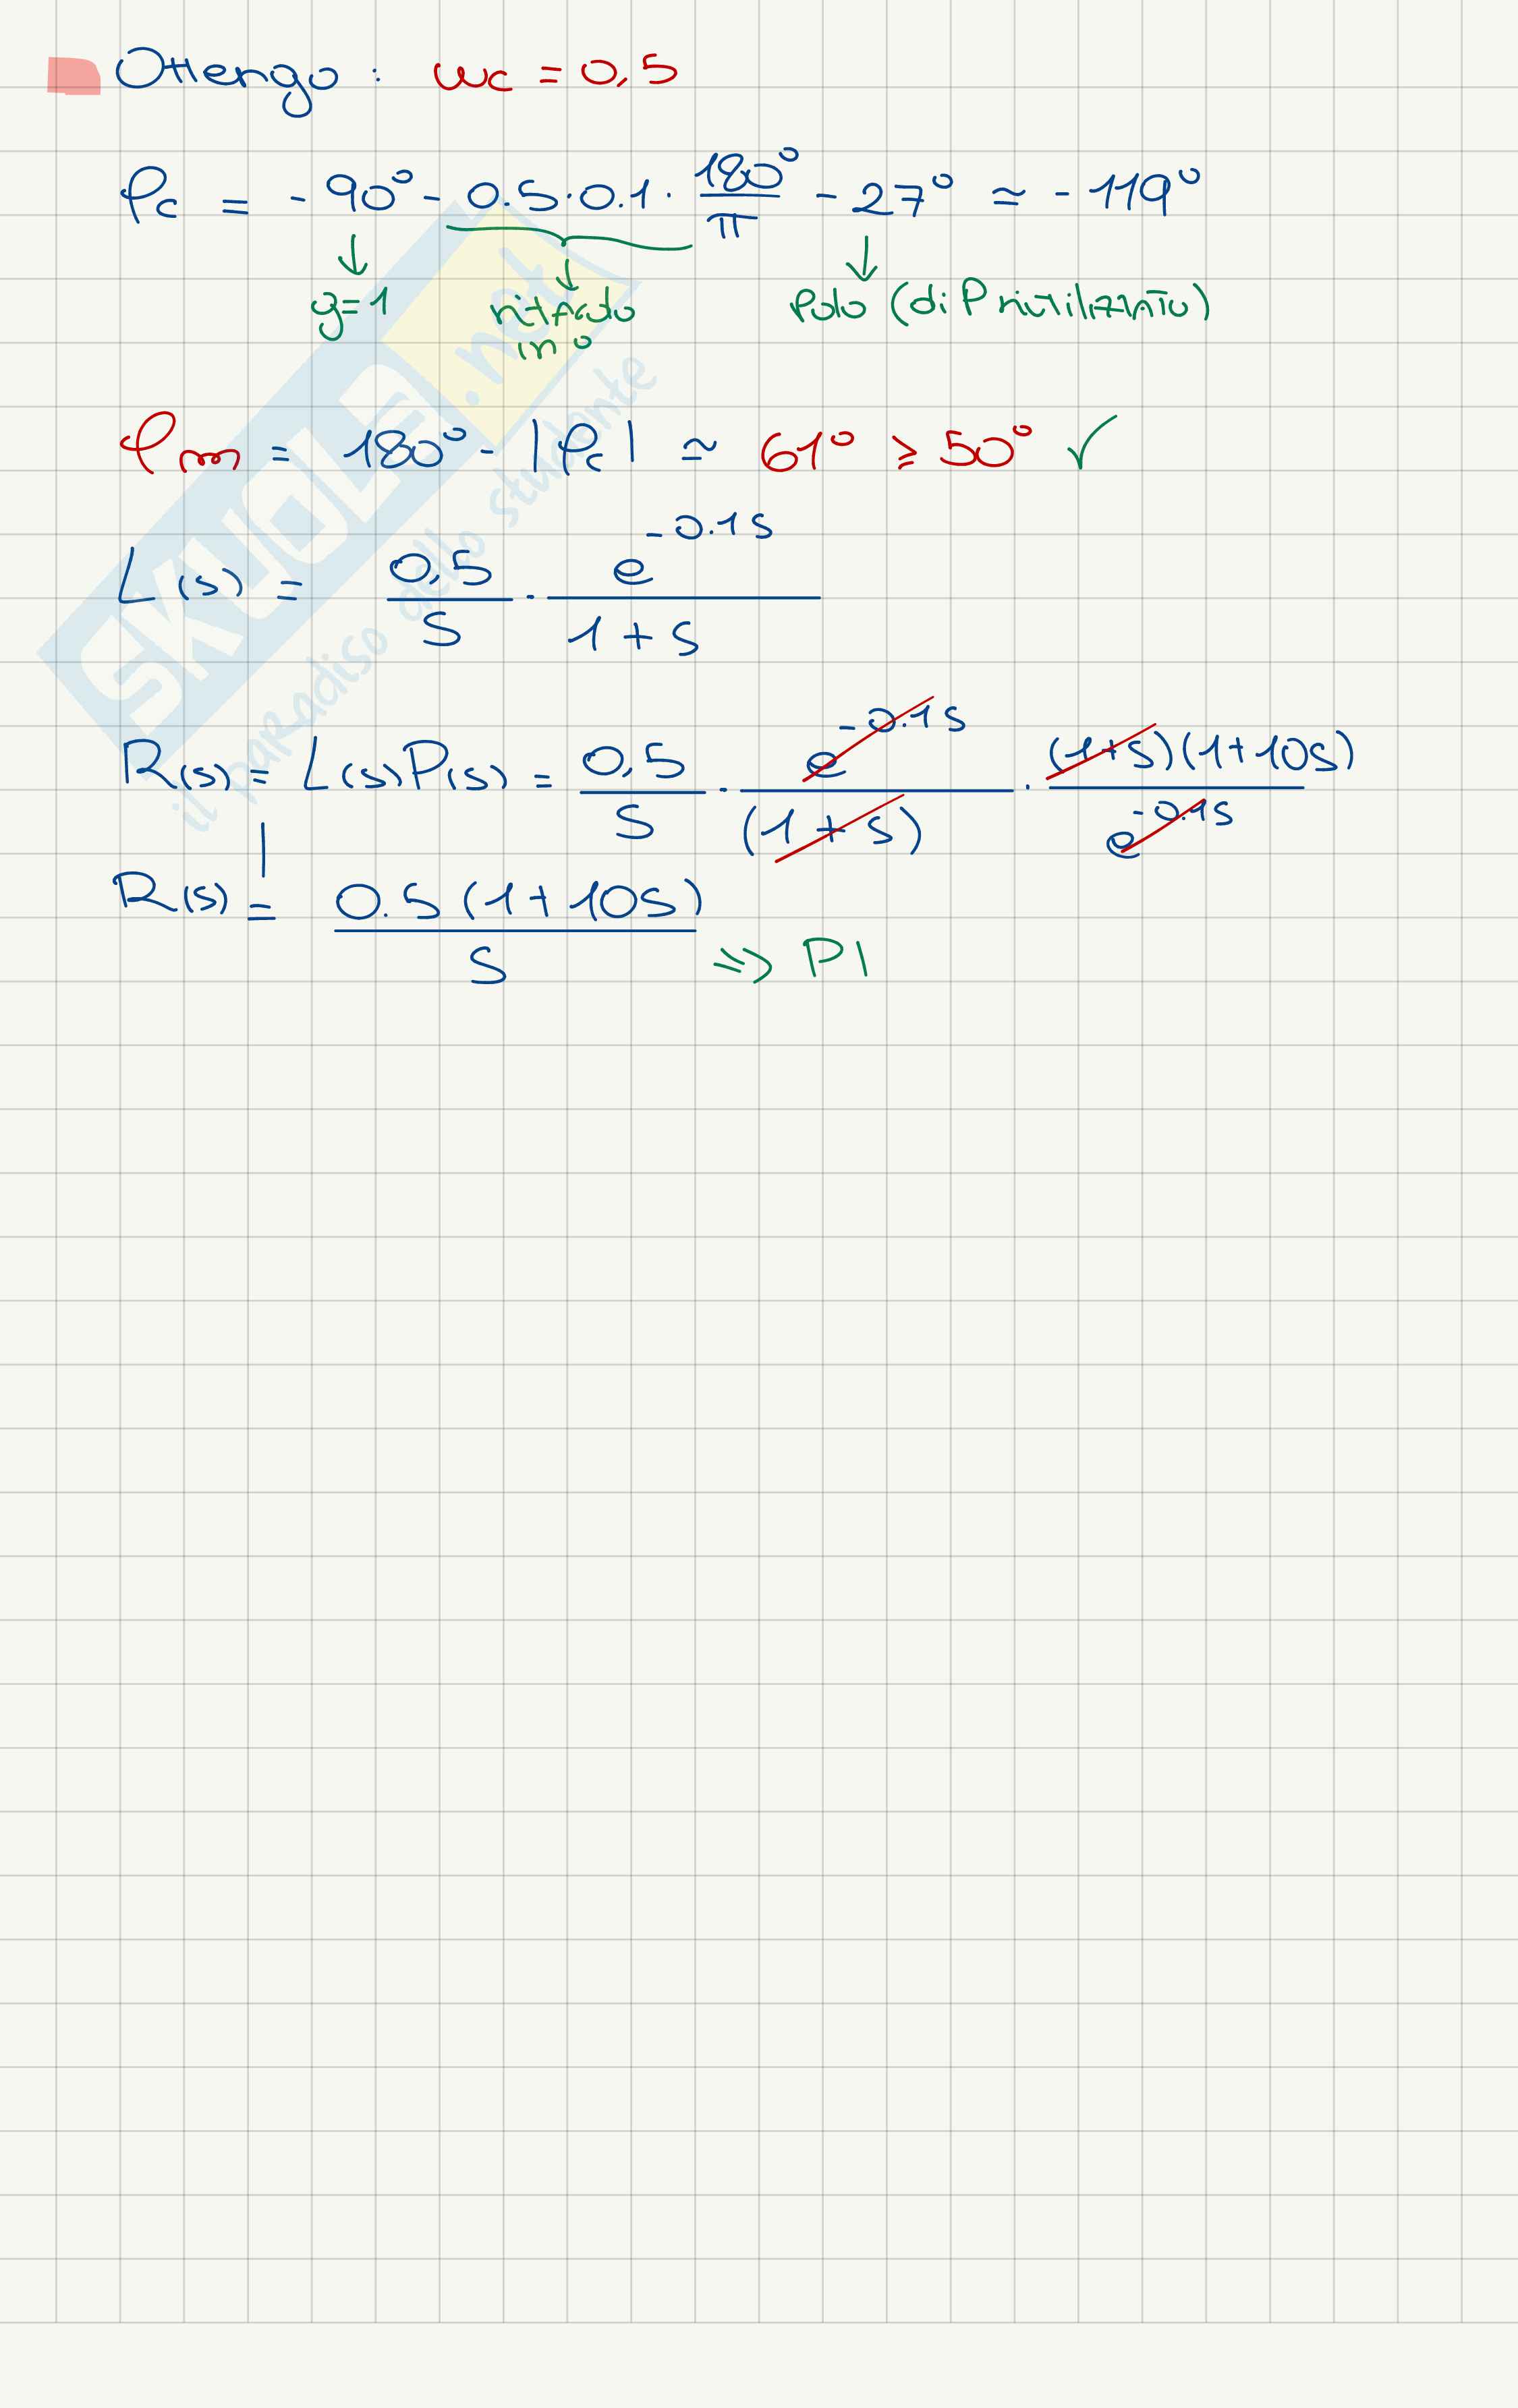 Ottengo : ωc = 0,5
φc = - 90° - 0.5 · 0.1 · 180°/π - 27° ≃ - 119°
g=1 ritardo in ° Polo (di P
φm = 180° - |φc| ≃ 61° ≥ 50° ✓
L(s) = 0,5/s · e^(-0.1s)/(1+s)
R(s) = L(s)P(s) = 0,5/s · e^(-0.1s)/(1+s) · (1+s)(1+10s)/e^(-0.1s)
R(s) = 0.5(1+10s)/s => PI
SKUOLA.net
il paradiso dello studente